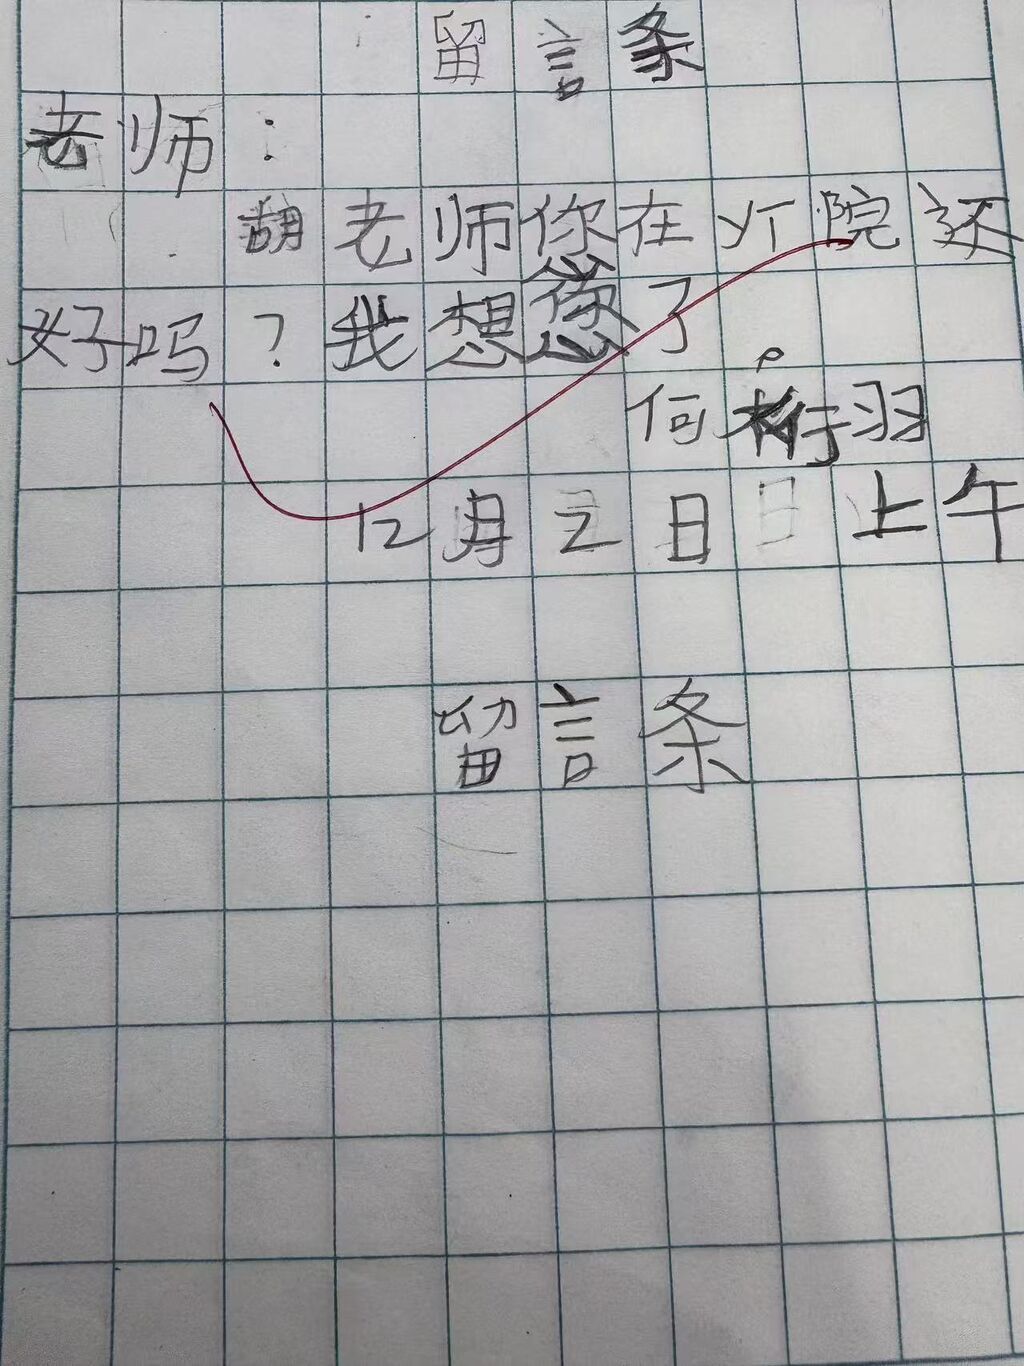 留言条
老师：
胡老师你在疒院还
好吗？我想您了。
何桁羽
12月2日日上午
留言条